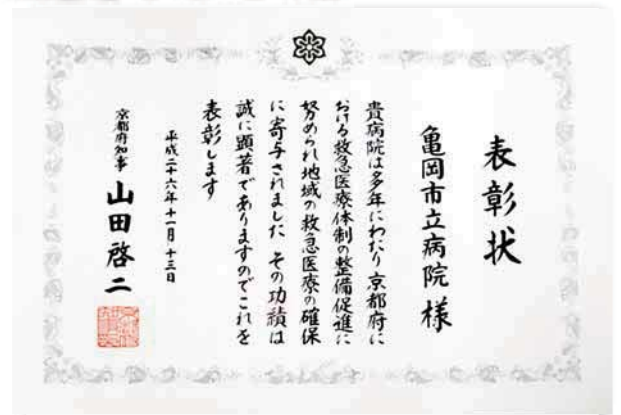 表彰状
亀岡市立病院 様
貴病院は多年にわたり京都府に
おける救急医療体制の整備促進に
努められ地域の救急医療の確保
に寄与されました その功績は
誠に顕著でありますのでこれを
表彰します
平成二十六年十一月十三日
京都府知事 山田啓二